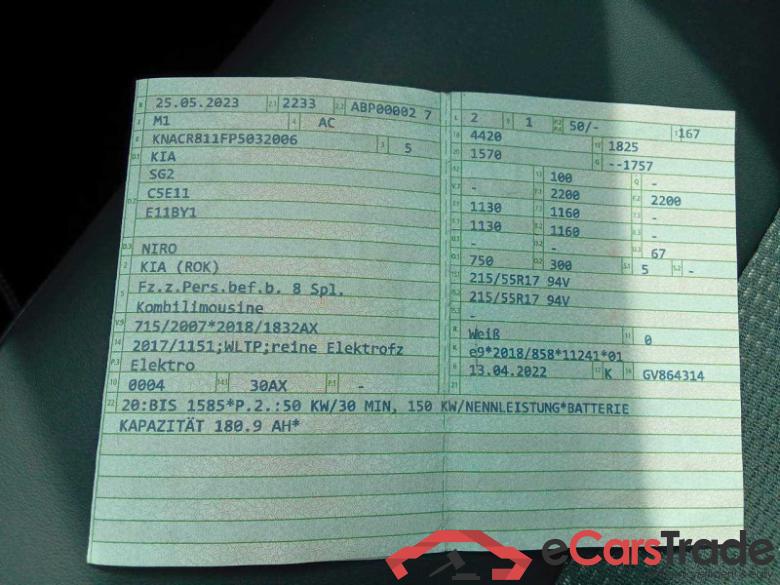 25.05.2023 2233 ABP00002 7
M1 AC
KNACR811FP5032006 5
KIA
SG2
C5E11
E11BY1
NIRO
KIA (ROK)
Fz.z.Pers.bef.b. 8 Spl.
Kombilimousine
715/2007*2018/1832AX
2017/1151;WLTP;reine Elektrofz
Elektro
0004 30AX -
2 1 50/- 167
4420 1825
1570 --1757
100 -
- 2200 2200
1130 1160 -
1130 1160 -
- - 67
750 300 5 -
215/55R17 94V
215/55R17 94V
-
Weiß 0
e9*2018/858*11241*01
13.04.2022 K GV864314
20:BIS 1585*P.2.:50 KW/30 MIN, 150 KW/NENNLEISTUNG*BATTERIE
KAPAZITÄT 180.9 AH*
eCarsTrade